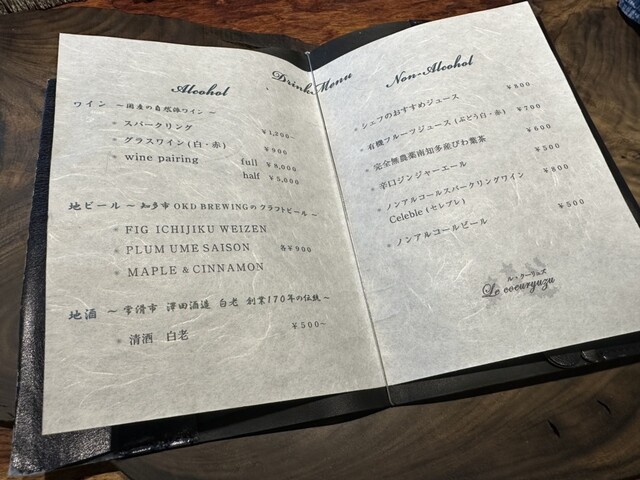 Drink Menu
Alcohol
ワイン ～国産の自然派ワイン～
スパークリング ¥1,200~
グラスワイン(白・赤) ¥900
wine pairing full ¥8,000
half ¥5,000
地ビール ～知多市 OKD BREWINGのクラフトビール～
FIG ICHIJIKU WEIZEN
PLUM UME SAISON 各¥900
MAPLE & CINNAMON
地酒 ～常滑市 澤田酒造 白老 創業170年の伝統～
清酒 白老 ¥500~
Non-Alcohol
シェフのおすすめジュース ¥800
有機フルーツジュース(ぶどう白・赤) ¥700
完全無農薬南知多産びわ葉茶 ¥600
辛口ジンジャーエール ¥500
ノンアルコールスパークリングワイン ¥800
Celeble(セレブレ)
ノンアルコールビール ¥500
ル・クーリュズ
Le coeuryuzu